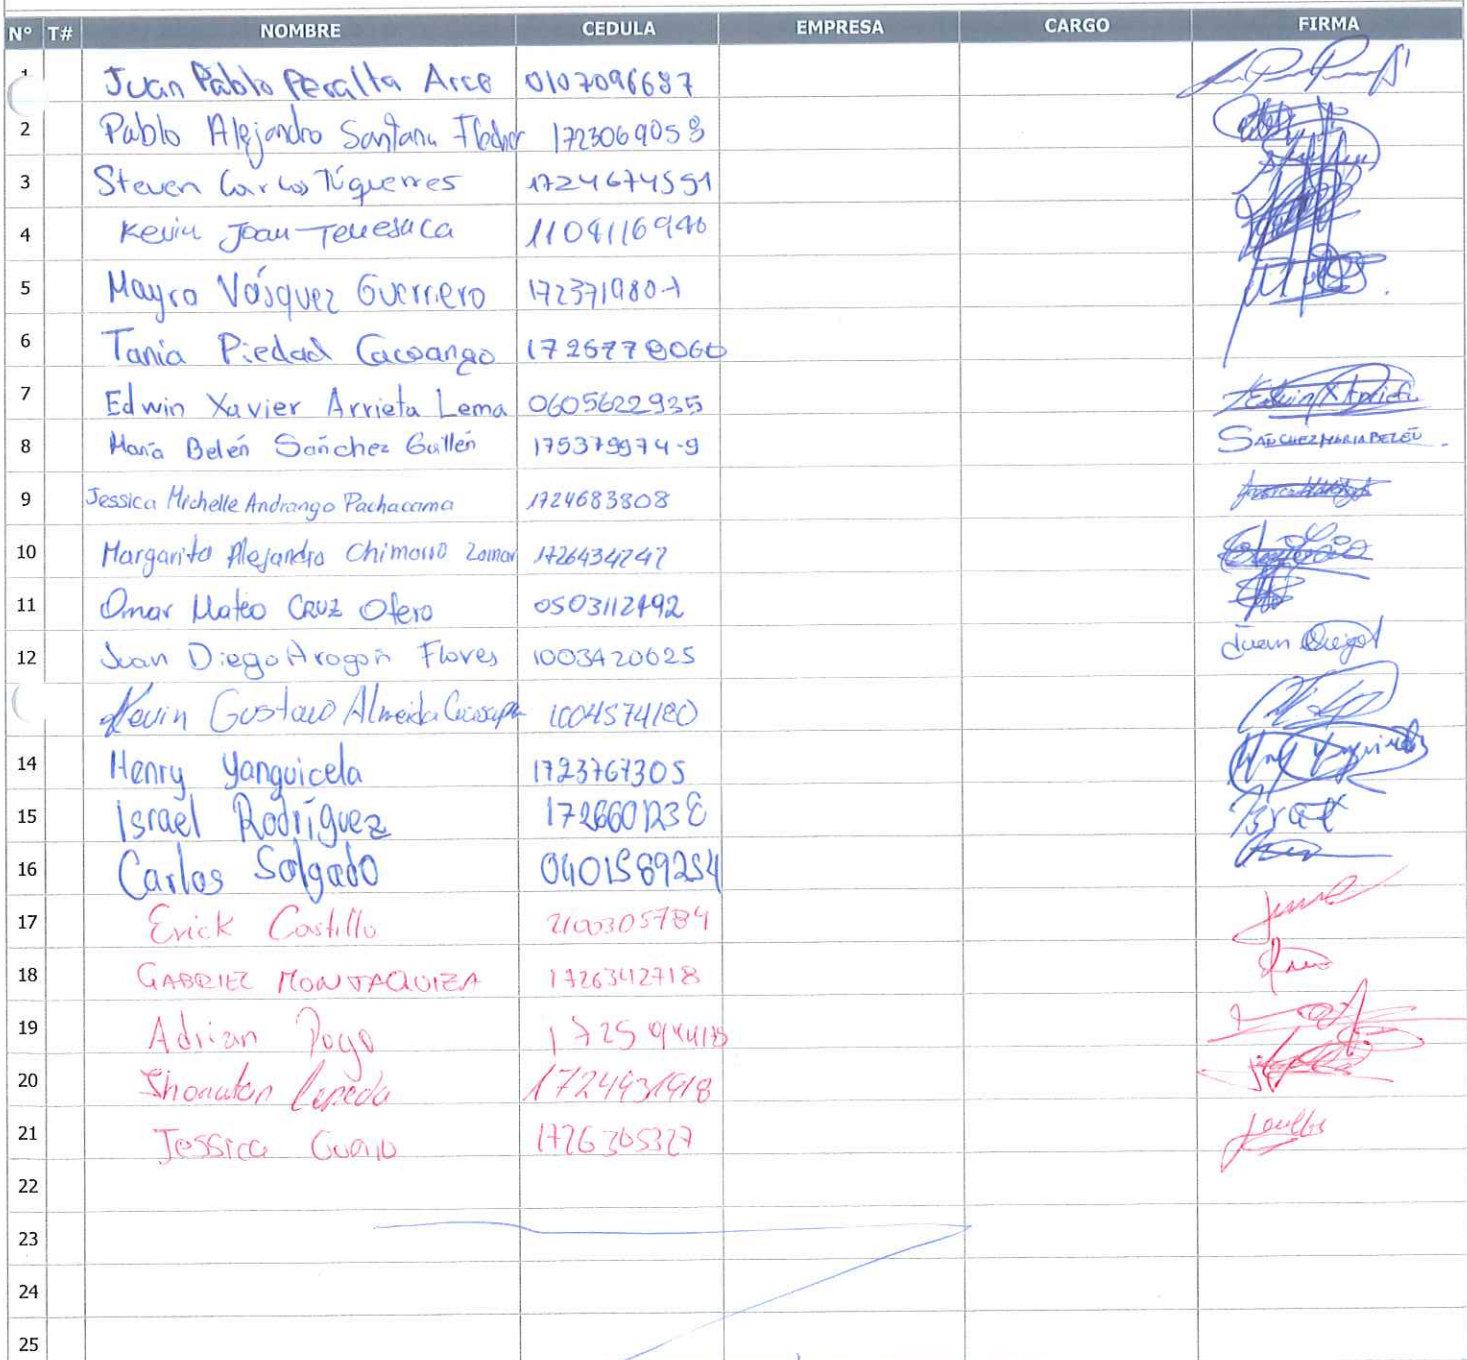 N° T# NOMBRE CEDULA EMPRESA CARGO FIRMA
1 Juan Pablo Peralta Arce 0107096687
2 Pablo Alejandro Santana 1723069053
3 Steven Carlos Túquerres 1724674551
4 Kevin Joan Tenesaca 1104116940
5 Mayra Vásquez Guerrero 172371980-7
6 Tania Piedad Cacoango 1725778060
7 Edwin Xavier Arrieta Lema 0605622935 Edwin X Arrieta
8 María Belén Sánchez Guillén 175379974-9 SANCHEZ MARIA BELÉN
9 Jessica Michelle Andrango Pachacama 1724683808
10 Margarita Alejandra 1726434247
11 Omar Mateo CRUZ Otero 0503112492
12 Juan Diego Aragón Flores 1003420625 Juan Diego
Kevin Gustavo Almeida 1004574180
14 Henry Yanguicela 1723767305
15 Israel Rodríguez 172660123 Israel
16 Carlos Salgado 0401589254
17 Erick Castillo 2100305784
18 GABRIEL MONTAQUIZA 1726342718
19 Adrian Pogo
20 Jhonatan Cepeda
21 Jessica 1726305327
22
23
24
25